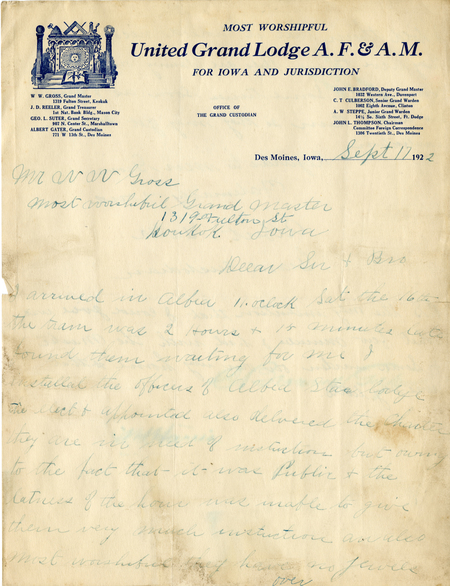 MOST WORSHIPFUL
United Grand Lodge A. F. & A. M.
FOR IOWA AND JURISDICTION
W. W. GROSS, Grand Master
1319 Fulton Street, Keokuk
J. D. REELER, Grand Treasurer
1st Nat. Bank Bldg., Mason City
GEO. L. SUTER, Grand Secretary
907 N. Center St., Marshalltown
ALBERT GATER, Grand Custodian
771 W 13th St., Des Moines
OFFICE OF
THE GRAND CUSTODIAN
JOHN E. BRADFORD, Deputy Grand Master
1032 Western Ave., Davenport
C. T. CULBERSON, Senior Grand Warden
1002 Eighth Avenue, Clinton
A. W STEPPE, Junior Grand Warden
14½ So. Sixth Street, Ft. Dodge
JOHN L. THOMPSON, Chairman
Committee Foreign Correspondence
1300 Twentieth St., Des Moines
Des Moines, Iowa, Sept 17 1922
Mr W W Gross
most worshipful Grand master
1319 Fulton St
Iowa
Dear Sir & Bro
I arrived in Albia 11 oclock Sat the 16
the train was 2 Hours & minutes late
found them waiting for me I
the officers of Albia Star Lodge
elect & appointed also delivered the
they are in need of instruction but owing
to the fact that it was Public & the
latness of the hour was unable to give
them very much instruction
most worshipful they have no Jewels
over